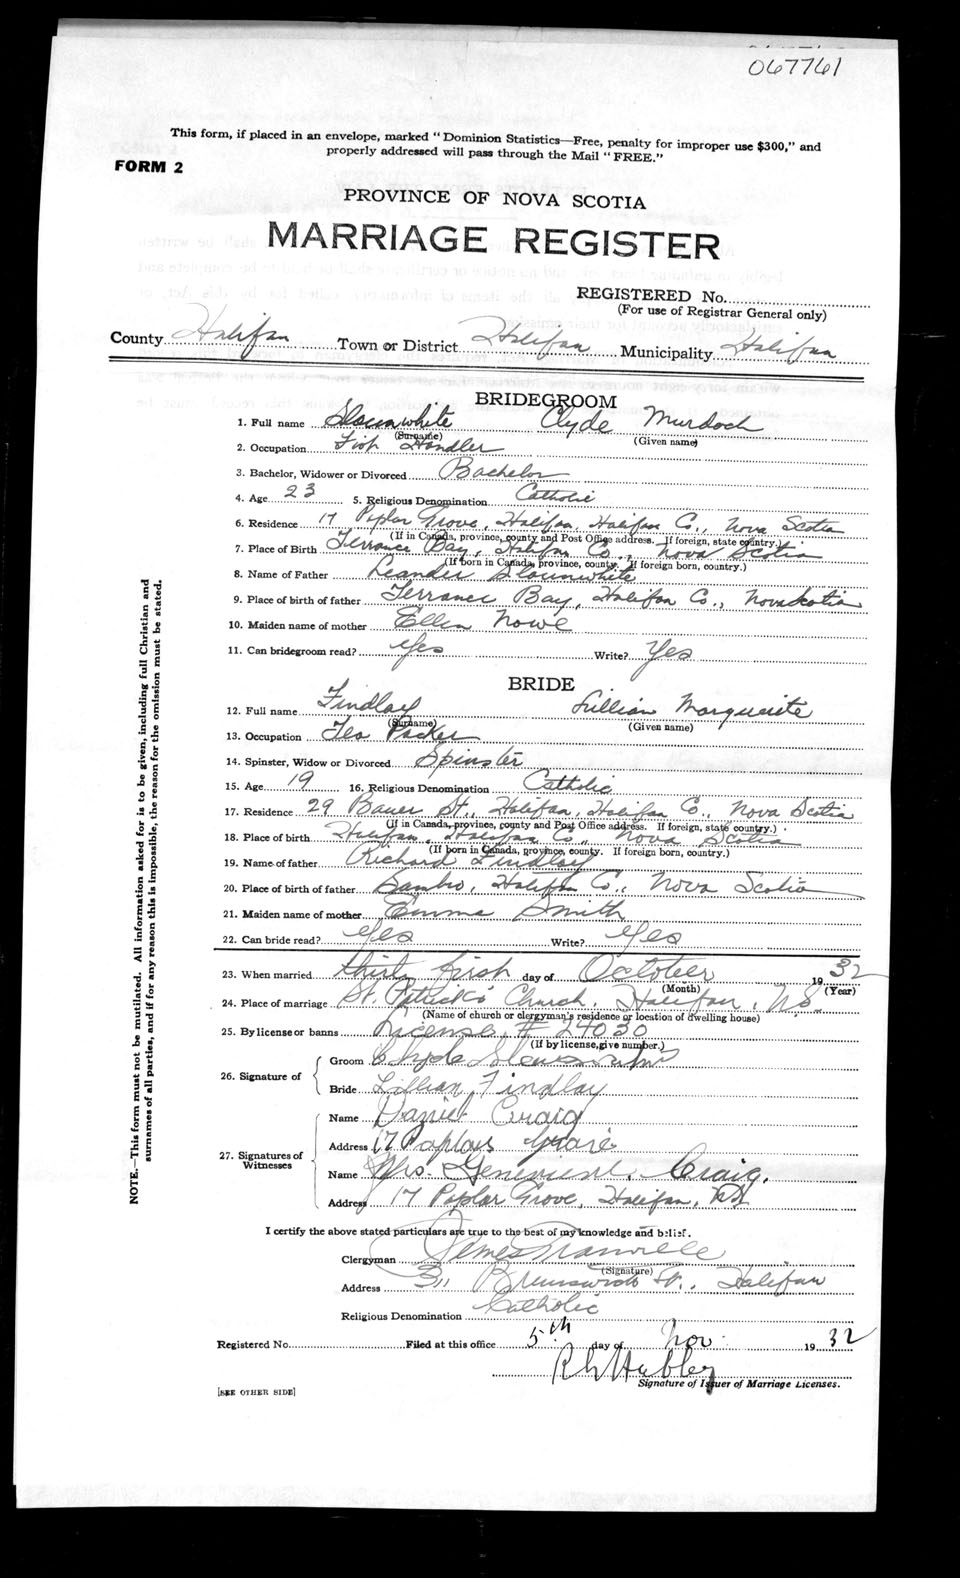 067761
This form, if placed in an envelope, marked "Dominion Statistics—Free, penalty for improper use $300," and
properly addressed will pass through the Mail "FREE."
FORM 2
PROVINCE OF NOVA SCOTIA
MARRIAGE REGISTER
REGISTERED No.
(For use of Registrar General only)
County Halifax Town or District Halifax Municipality Halifax
BRIDEGROOM
1. Full name Slaunwhite Clyde Murdoch
(Surname) (Given name)
2. Occupation Fish Handler
3. Bachelor, Widower or Divorced Bachelor
4. Age 23 5. Religious Denomination Catholic
6. Residence 17 Poplar Grove, Halifax, Halifax Co., Nova Scotia
(If in Canada, province, county and Post Office address. If foreign, state country.)
7. Place of Birth Terrance Bay, Halifax Co., Nova Scotia
(If born in Canada, province, county. If foreign born, country.)
8. Name of Father Leander Slounwhite
9. Place of birth of father Terrance Bay, Halifax Co., Nova Scotia
10. Maiden name of mother Ellen Nowe
11. Can bridegroom read? Yes Write? Yes
BRIDE
12. Full name Findlay Lillian Marguerite
(Surname) (Given name)
13. Occupation Tea Packer
14. Spinster, Widow or Divorced Spinster
15. Age 19 16. Religious Denomination Catholic
17. Residence 29 Bauer St., Halifax, Halifax Co., Nova Scotia
(If in Canada, province, county and Post Office address. If foreign, state country.)
18. Place of birth Halifax, Halifax Co., Nova Scotia
(If born in Canada, province, county. If foreign born, country.)
19. Name of father Richard Findlay
20. Place of birth of father Sambro, Halifax Co., Nova Scotia
21. Maiden name of mother Emma Smith
22. Can bride read? Yes Write? Yes
23. When married thirty first day of October 1932
(Month) (Year)
24. Place of marriage St. Patrick's Church, Halifax, N.S.
(Name of church or clergyman's residence or location of dwelling house)
25. By license or banns License # 24030
(If by license, give number.)
26. Signature of
Groom Clyde
Bride Lillian Findlay
27. Signatures of Witnesses
Name Daniel Craig
Address 17 Poplar
Name Mrs. Genevieve Craig.
Address 17 Poplar Grove, Halifax, NS
I certify the above stated particulars are true to the best of my knowledge and belief.
Clergyman
(Signature)
Address Brunswick St., Halifax
Religious Denomination Catholic
Registered No. Filed at this office 5th day of Nov. 1932
R L Hubley
Signature of Issuer of Marriage Licenses.
[SEE OTHER SIDE]
NOTE.—This form must not be mutilated. All information asked for is to be given, including full Christian and
surnames of all parties, and if for any reason this is impossible, the reason for the omission must be stated.